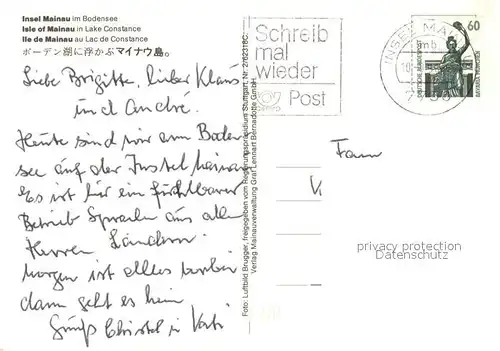 Insel Mainau im Bodensee
Isle of Mainau in Lake Constance
Ile de Mainau au Lac de Constance
ボーデン湖に浮かぶマイナウ島。
Liebe Brigitte, lieber Klaus
und André.
Heute sind wir am Boden
see auf der Insel Mainau
Es ist hier ein furchtbarer
Betrieb Sprachen aus allen
Herren Ländern.
Morgen ist alles vorbei
dann geht es heim
Gruß Christel u. Kati
Foto: Luftbild Brugger, freigegeben vom Regierungspräsidium Stuttgart Nr. 2/62318C.
Verlag Mainauverwaltung Graf Lennart Bernadotte GmbH
Schreib
mal
wieder
Post
INSEL MAI
mb
60
Fam
privacy protection
Datenschutz